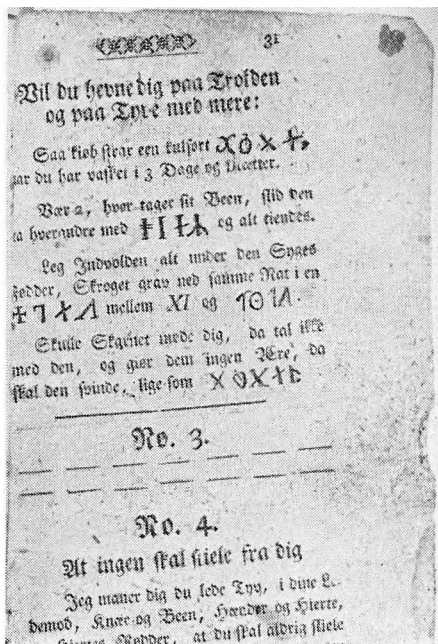 31
Vil du hevne dig paa Trolden
og paa Tyve med mere:
Saa kiøb strax een kulsort
har du har vasket i 3 Dage og Nætter.
Vær 2, hver tager sit Been, slid den
fra hverandre med og alt kiendes.
Leg Indvolden alt under den Syges
Fødder, Skroget grav ned samme Nat i en
mellem XI og
Skulle Skarnet møde dig, da tal ikke
med den, og giør dem ingen Ære, da
skal den svinde, lige som
No. 3.
No. 4.
At ingen skal stiele fra dig
Jeg maner dig du lede Tyv, i dine L-
demod, Knæe og Been, Hænder og Hierte,
Rødder, at du skal aldrig stiele